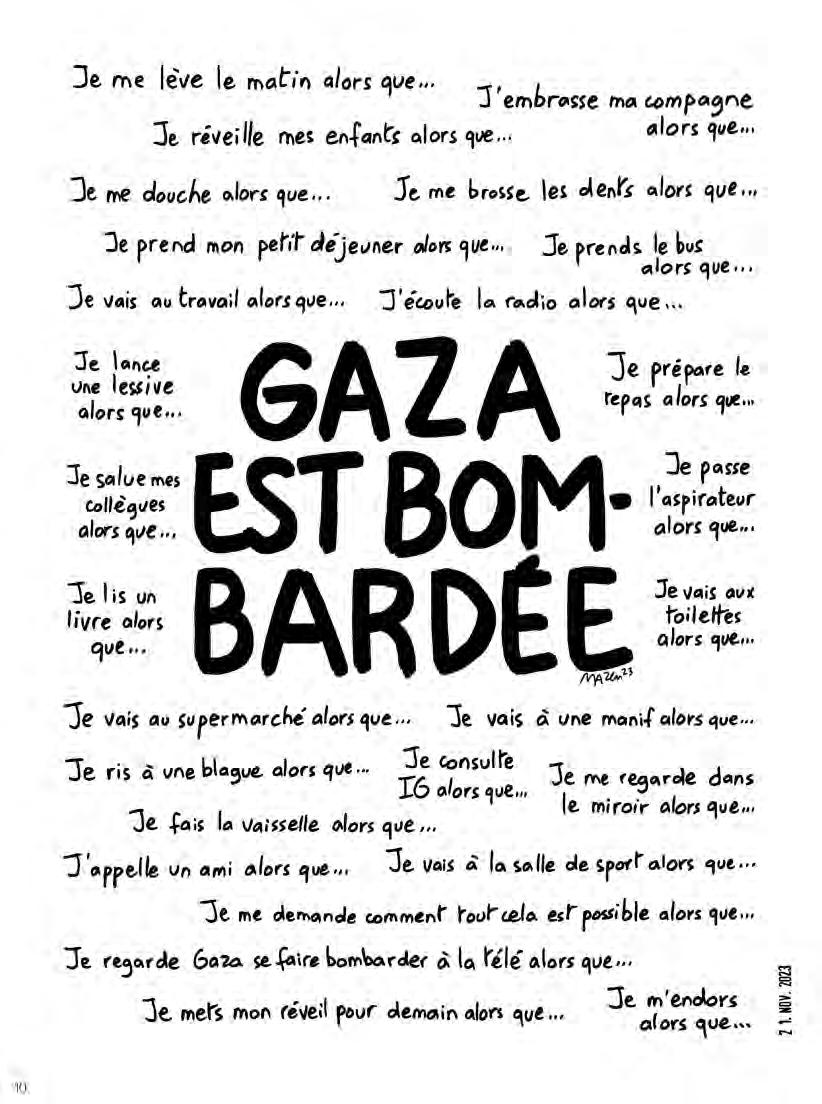 Je me lève le matin alors que...
J'embrasse ma compagne
alors que...
Je réveille mes enfants alors que...
Je me douche alors que...
Je me brosse les dents alors que...
Je prend mon petit déjeuner alors que...
Je prends le bus
alors que...
Je vais au travail alors que...
J'écoute la radio alors que...
Je lance
une lessive
alors que...
GAZA
EST BOM-
BARDÉE
MAZEN 23
Je prépare le
repas alors que...
Je salue mes
collègues
alors que...
Je passe
l'aspirateur
alors que...
Je lis un
livre alors
que...
Je vais aux
toilettes
alors que...
Je vais au supermarché alors que...
Je vais à une manif alors que...
Je ris à une blague alors que...
Je consulte
IG alors que...
Je me regarde dans
le miroir alors que...
Je fais la vaisselle alors que...
J'appelle un ami alors que...
Je vais à la salle de sport alors que...
Je me demande comment tout cela est possible alors que...
Je regarde Gaza se faire bombarder à la télé alors que...
Je mets mon réveil pour demain alors que...
Je m'endors
alors que...
21. NOV. 2023
10